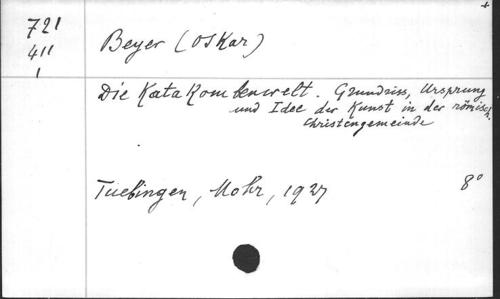 721
411
1
Beyer (Oskar)
Die Katakombenwelt. Grundriss, Ursprung
und Idee der Kunst in der römisch.
Christengemeinde
Tuebingen, Mohr, 1927
8°